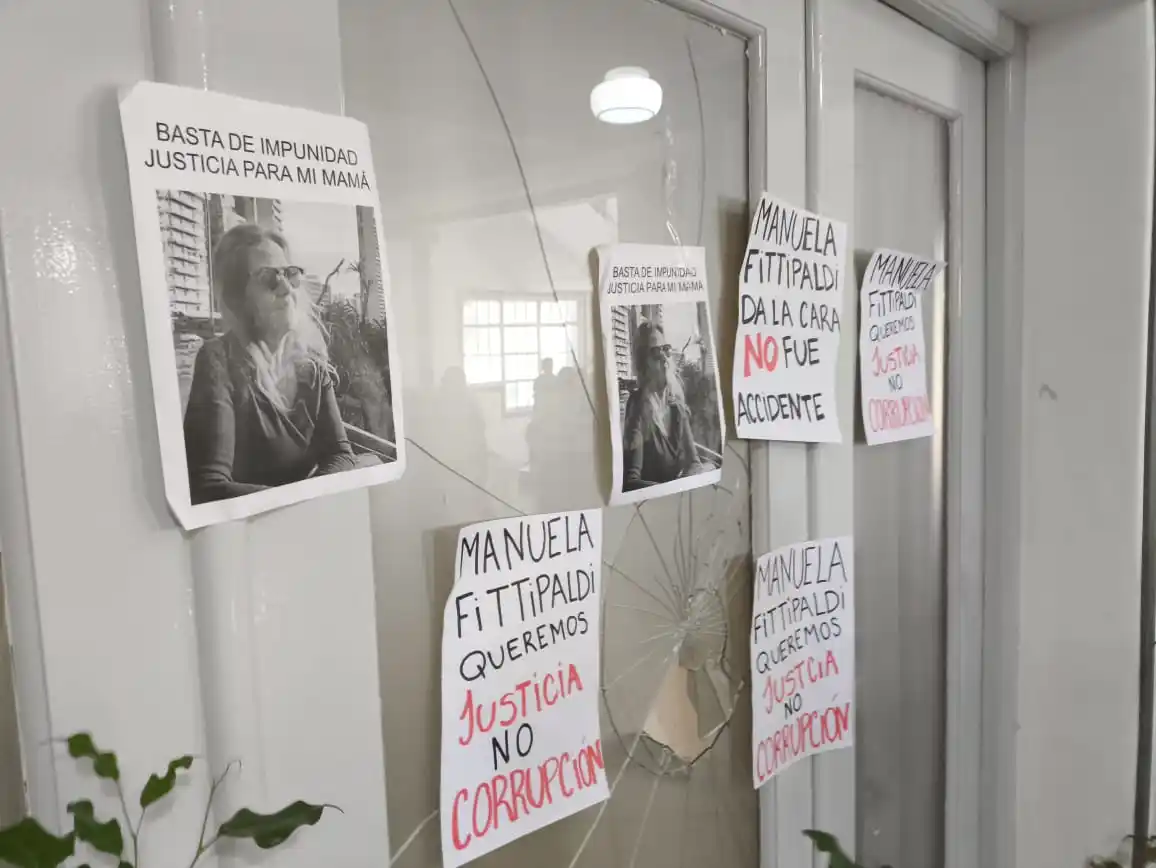 BASTA DE IMPUNIDAD
JUSTICIA PARA MI MAMÁ
BASTA DE IMPUNIDAD
JUSTICIA PARA MI MAMÁ
MANUELA
FITTIPALDI
DA LA CARA
NO FUE
ACCIDENTE
MANUELA
FITTIPALDI
QUEREMOS
JUSTICIA
NO
CORRUPCIÓN
MANUELA
FITTIPALDI
QUEREMOS
JUSTICIA
NO
CORRUPCIÓN
MANUELA
FITTIPALDI
QUEREMOS
JUSTCIA
NO
CORRUPCIÓN